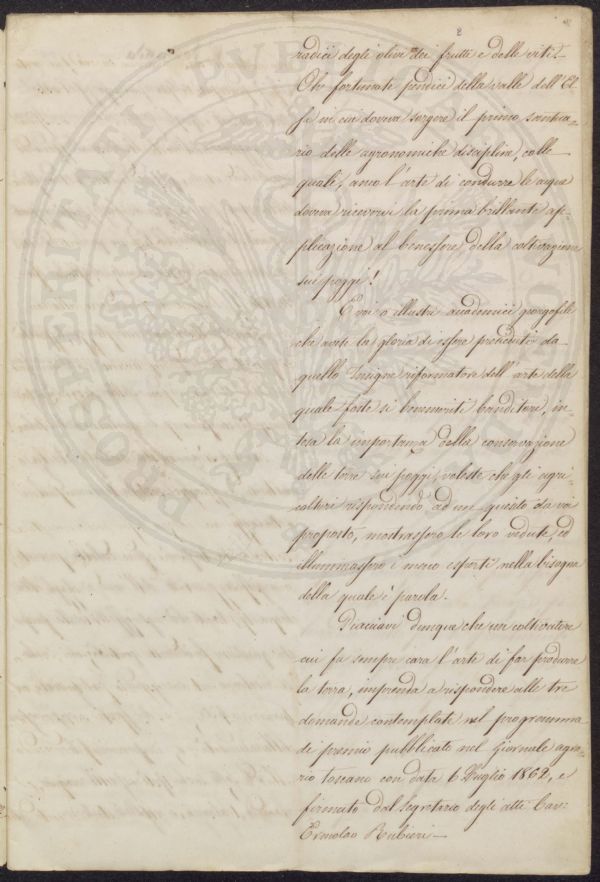 2
radici degli olivi dei frutti e delle viti!
Oh fortunate pendici della valle dell'El-
sa in cui doveva sorgere il primo santua-
rio delle agronomiche discipline, colle
quali, anco l'arte di condurre le acque
doveva ricevervi la prima brillante ap-
plicazione al benessere della coltivazione
sui poggi!
E voi o illustri accademici georgofili
che avete la gloria di essere preceduti da
quello insigne riformatore dell'arte della
quale foste sì benemeriti banditori, in-
tesa la importanza della conservazione
delle terre sui poggi, voleste che gli agri-
cultori rispondendo ad un quesito da voi
proposto, mostrassero le loro vedute, ed
illuminassero i meno esperti nella bisogna
della quale è parola.
Piacciavi dunque che un coltivatore
cui fu sempre cara l'arte di far produrre
la terra, imprenda a rispondere alle tre
domande contemplate nel programma
di premio pubblicato nel Giornale agra-
rio toscano con data 6 Luglio 1862, e
firmato dal segretario degli atti Cav:
Ermolao Rubieri —
PROSPERITATI PUBLICAE